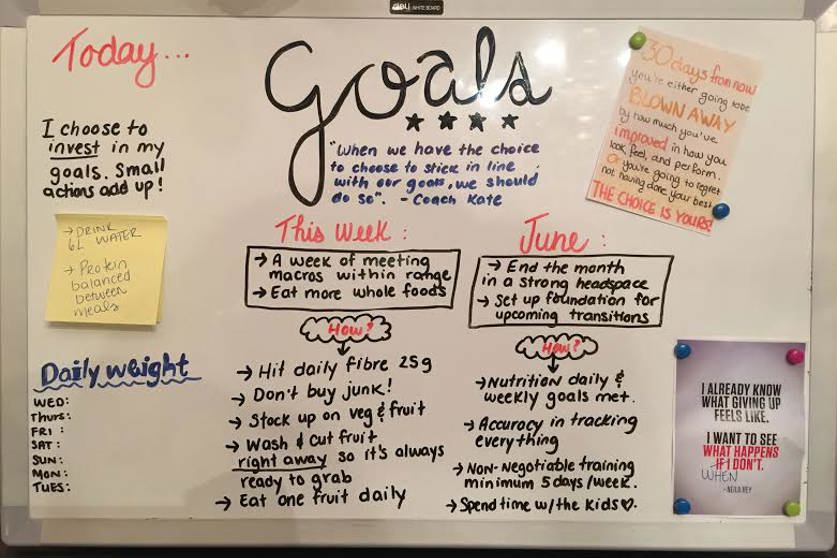 deli WHITE BOARD
Today...
I choose to
invest in my
goals. Small
actions add up!
→ DRINK
6L WATER
→ Protein
balanced
between
meals
Daily weight
WED:
THURS:
FRI:
SAT:
SUN:
MON:
TUES:
Goals
★★★★
"When we have the choice
to choose to stick in line
with our goals, we should
do so". - Coach Kate
This Week:
→ A week of meeting
macros within range
→ Eat more whole foods
How?
→ Hit daily fibre 25g
→ Don't buy junk!
→ Stock up on veg & fruit
→ Wash & cut fruit
right away so it's always
ready to grab
→ Eat one fruit daily
June:
→ End the month
in a strong headspace
→ Set up foundation for
upcoming transitions
How?
→ Nutrition daily &
weekly goals met.
→ Accuracy in tracking
everything
→ Non-Negotiable training
minimum 5 days/week.
→ Spend time w/the kids♡.
30 days from now
you're either going to be
BLOWN AWAY
by how much you've
improved in how you
look, feel, and perform.
Or you're going to regret
not having done your best
THE CHOICE IS YOURS!
I ALREADY KNOW
WHAT GIVING UP
FEELS LIKE.
I WANT TO SEE
WHAT HAPPENS
IF I DON'T.
WHEN
- NEILA REY